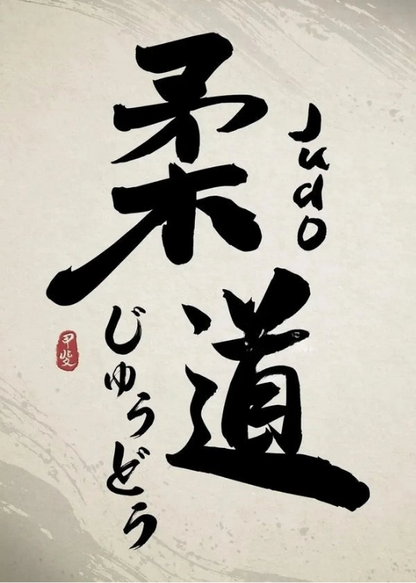 柔道
Judo
じゅうどう
甲斐